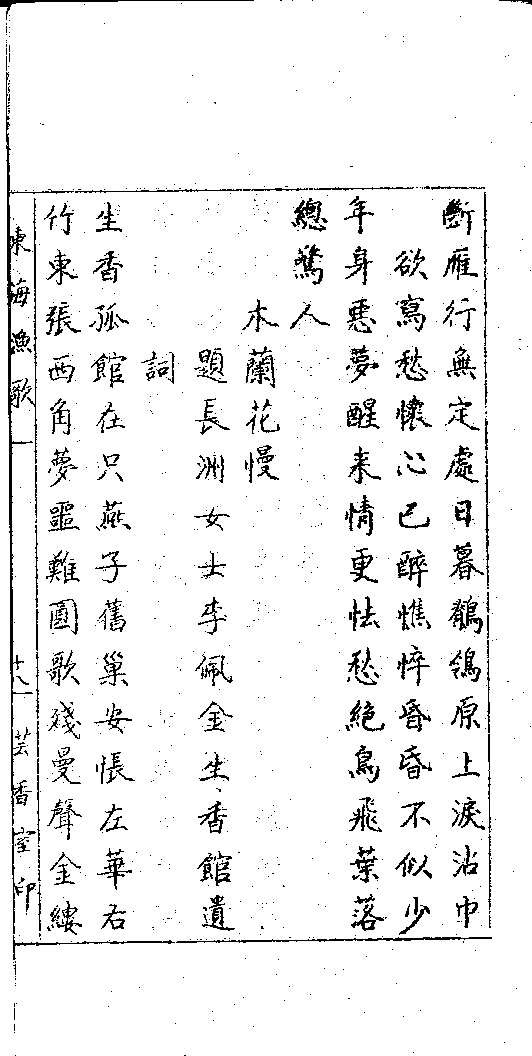 斷雁行無定處日暮鶺鴒原上淚沾巾
欲寫愁懷心已醉憔悴昏昏不似少
年身惡夢醒来情更怯愁絶鳥飛葉落
總驚人
木蘭花慢
題長洲女士李佩金生香館遺
詞
生香孤館在只燕子舊巢安悵左華右
竹東張西角夢噩難圓歌殘曼聲金縷
東海漁歌一
十八
芸香室印